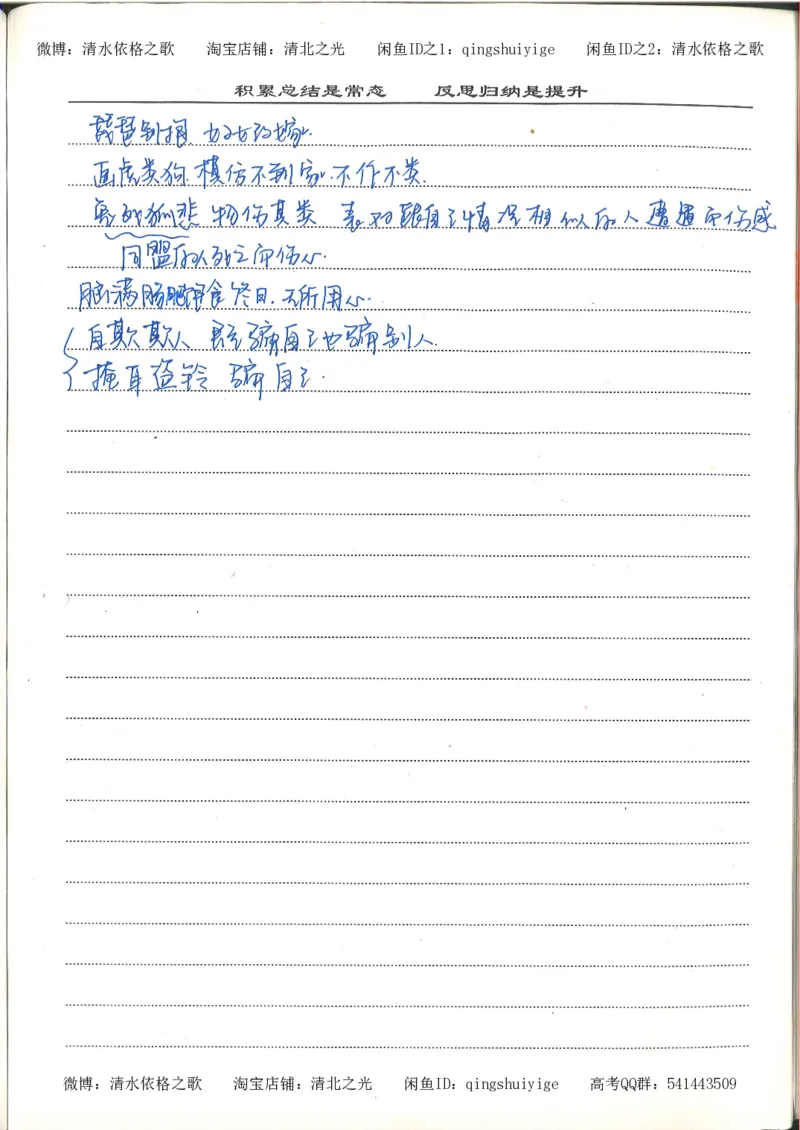 微博：清水依格之歌 淘宝店铺：清北之光 闲鱼ID之1：qingshuiyige 闲鱼ID之2：清水依格之歌
积累总结是常态 反思归纳是提升
琵琶别抱 女改嫁.
画虎类狗.模仿不到家.不作不类.
兔死狐悲 物伤其类 表对跟自己情况相似的人遭遇而伤感
同盟的人死亡而伤心.
脑满肠肥 饱食终日.无所用心.
自欺欺人 既骗自己也骗别人.
掩耳盗铃 骗自己.
微博：清水依格之歌 淘宝店铺：清北之光 闲鱼ID：qingshuiyige 高考QQ群：541443509